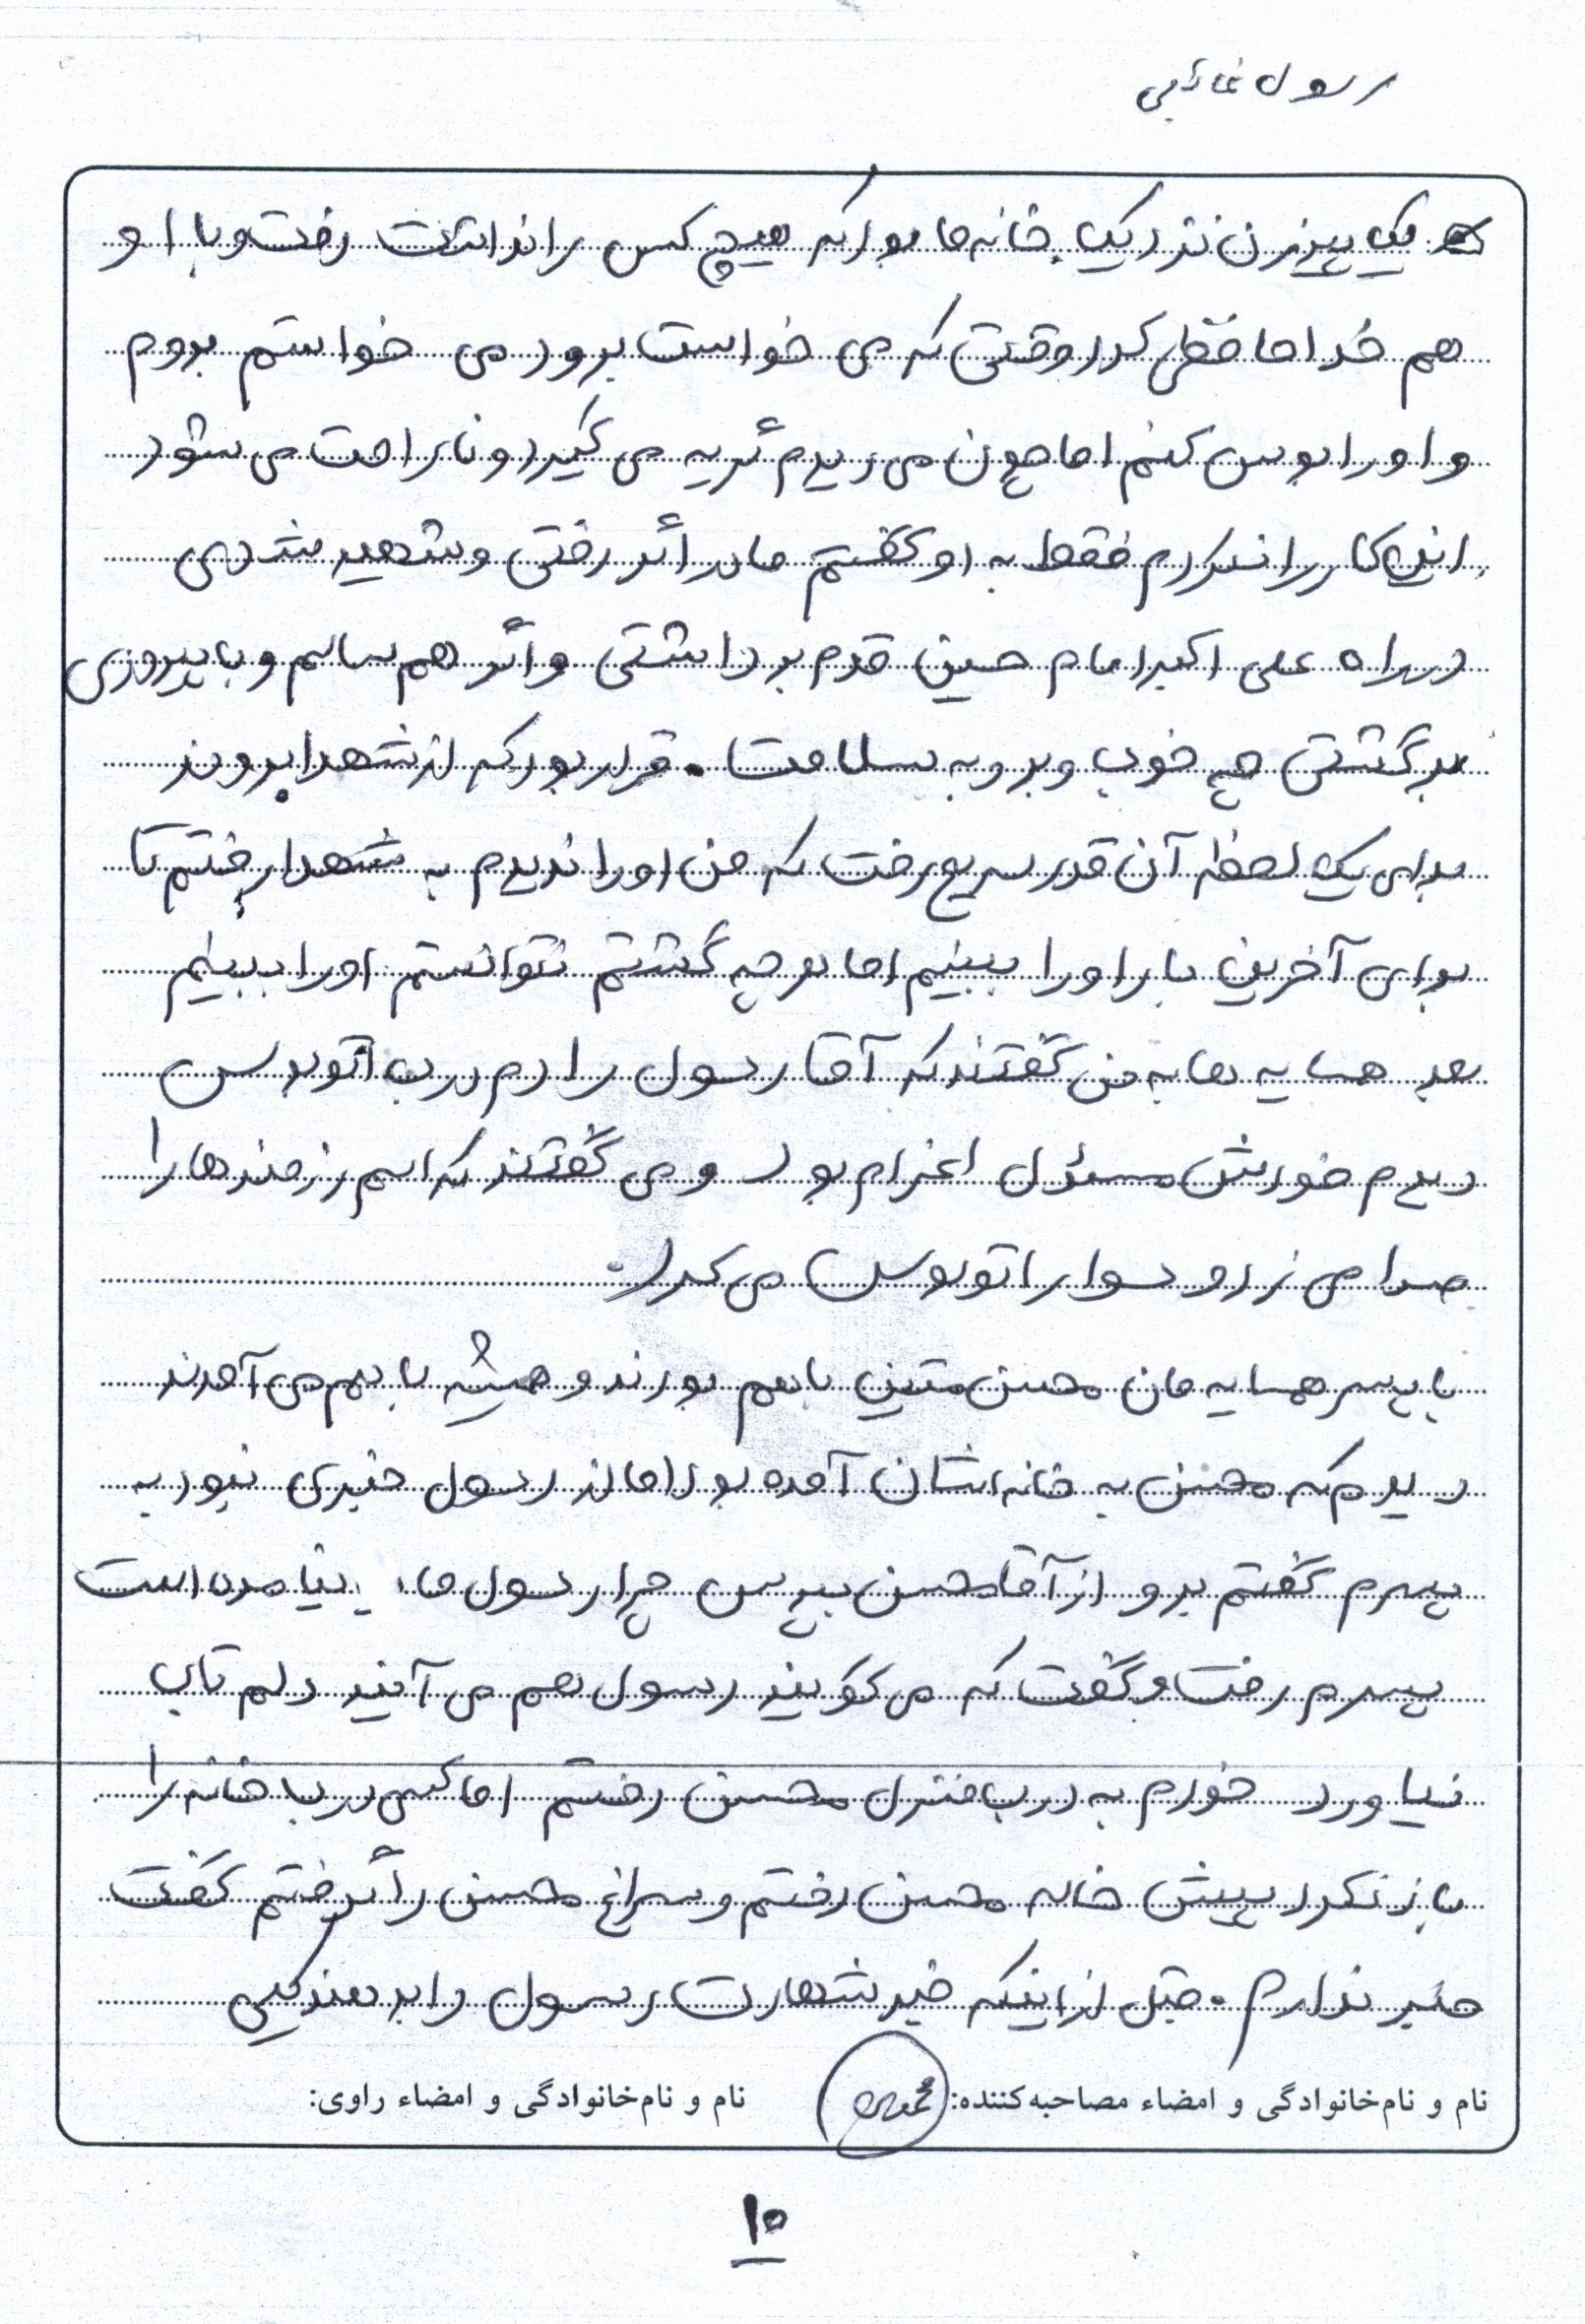 رسول غائبی
یک پیرزن نزدیک خانه ما بود که هیچ کس را نداشت رفت و با او
هم خداحافظی کرد وقتی که می خواست برود می خواستم بروم
و او را بوس کنم اما چون می دیدم گریه می گیرد و ناراحت می شود
این کار را نکردم فقط به او گفتم مادر اگر رفتی و شهید شدی
در راه علی اکبر امام حسین قدم برداشتی و اگر هم سالم و با پیروزی
برگشتی چه خوب و برو به سلامت . قرار بود که از شهدا بروند
برای یک لحظه آن قدر سریع رفت که من او را ندیدم به شهدا رفتم تا
برای آخرین بار او را ببینیم اما هر چه گشتم نتوانستم او را ببینم
بعد همسایه ها به من گفتند که آقا رسول را دم درب اتوبوس
دیدم خودش مسئول اعزام بود و می گفتند که اسم رزمنده ها را
صدا می زد و سوار اتوبوس می کرد .
با پسر همسایه مان محسن متین باهم بودند و همیشه با هم می آمدند
دیدم که محسن به خانه اشان آمده بود اما از رسول خبری نبود به
پسرم گفتم برو از آقا محسن بپرس چرا رسول ما نیامده است
پسرم رفت و گفت که می گویند رسول هم می آیند دلم تاب
نیاورد خودم به درب منزل محسن رفتم اما کسی درب خانه را
باز نکرد پیش خاله محسن رفتم و سراغ محسن را گرفتم گفت
خبر ندارم . قبل از اینکه خبر شهادت رسول را بدهند کسی
نام و نام‌خانوادگی و امضاء مصاحبه‌کننده: نام و نام‌خانوادگی و امضاء راوی:
۱۰